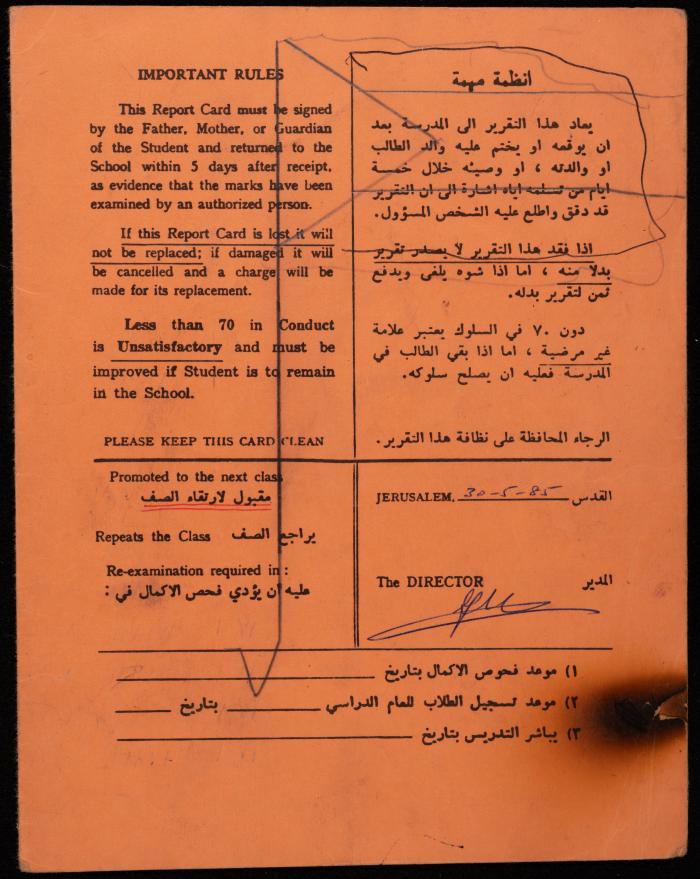 IMPORTANT RULES
This Report Card must be signed
by the Father, Mother, or Guardian
of the Student and returned to the
School within 5 days after receipt,
as evidence that the marks have been
examined by an authorized person.
If this Report Card is lost it will
not be replaced; if damaged it will
be cancelled and a charge will be
made for its replacement.
Less than 70 in Conduct
is Unsatisfactory and must be
improved if Student is to remain
in the School.
PLEASE KEEP THIS CARD CLEAN
انظمة مهمة
يعاد هذا التقرير الى المدرسة بعد
ان يوقعه او يختم عليه والد الطالب
او والدته ، او وصيه خلال خمسة
ايام من تسلمه اياه اشارة الى ان التقرير
قد دقق واطلع عليه الشخص المسؤول.
اذا فقد هذا التقرير لا يصدر تقرير
بدلا منه ، اما اذا شوه يلغى ويدفع
ثمن لتقرير بدله.
دون ٧٠ في السلوك يعتبر علامة
غير مرضية ، اما اذا بقي الطالب في
المدرسة فعليه ان يصلح سلوكه.
الرجاء المحافظة على نظافة هذا التقرير.
Promoted to the next class
مقبول لارتقاء الصف
Repeats the Class يراجع الصف
Re-examination required in :
عليه ان يؤدي فحص الاكمال في :
JERUSALEM, 30-5-85 القدس
The DIRECTOR المدير
١) موعد فحوص الاكمال بتاريخ
٢) موعد تسجيل الطلاب للعام الدراسي بتاريخ
٣) يباشر التدريس بتاريخ